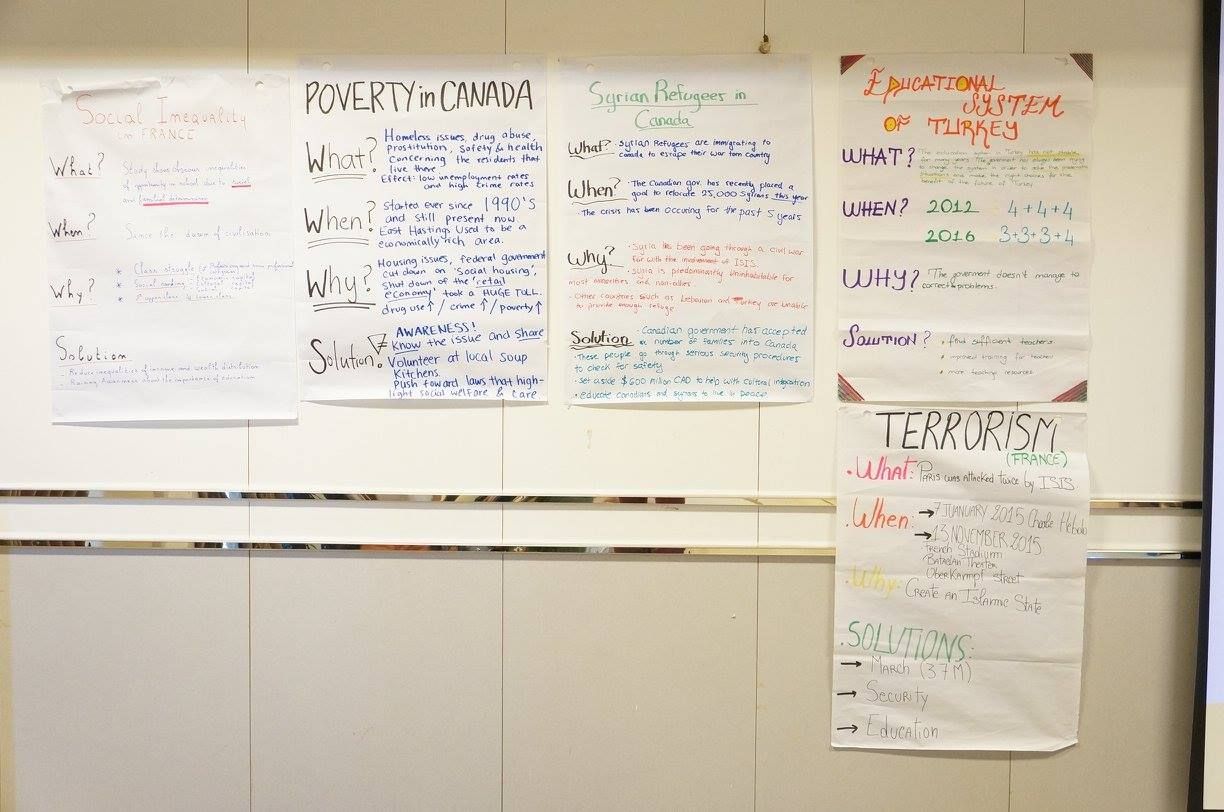 Social Inequality
in FRANCE
What?
Study shows obvious inequalities
of opportunity in school due to social
and familial determinism
When?
Since the dawn of civilisation
Why?
* Class struggle
* Social ranking
*
Solution
- Reduce inequalities of income and wealth distribution
- Raising Awareness about the importance of education
POVERTY in CANADA
What?
Homeless issues, drug abuse,
prostitution, safety & health
concerning the residents that
live there
Effect: low unemployment rates
and high crime rates
When?
Started ever since 1990'S
and still present now.
East Hastings used to be a
economically rich area.
Why?
Housing issues, federal government
cut down on 'Social housing',
shut down of the 'retail
economy' took a HUGE TOLL.
drug use↑ / crime↑ / poverty↑
Solution.
AWARENESS!
Know the issue and share
Volunteer at local soup
Kitchens.
Push toward laws that high-
light social welfare & care
Syrian Refugees in
Canada
What?
· Syrian Refugees are immigrating to
Canada to escape their war torn country
When?
· The Canadian gov. has recently placed a
goal to relocate 25,000 Syrians this year
· The crisis has been occuring for the past 5 years
Why?
· Syria has been going through a civil war
for with the involvement of ISIS.
· Syria is predominantly uninhabitable for
most minorities and non-allies.
· Other countries such as Lebanon and Turkey are unable
to provide enough refuge
Solution
· Canadian government has accepted
a number of families into Canada
· These people go through serious security procedures
to check for safety
· Set aside $600 million CAD to help with cultural integration
· educate canadians and syrians to live in peace
EDUCATIONAL
SYSTEM
OF TURKEY
WHAT?
The education system in Turkey has not stable
for many years. The goverment has always been trying
to change the system in order to solve the
situations and make the right choices for the
benefit of the future of Turkey
WHEN?
2012 4+4+4
2016 3+3+3+4
WHY?
"The goverment doesn't manage to
correct problems.
SOLUTION?
· find sufficient teachers
· improved training for teacher
· more teaching resources
TERRORISM
(FRANCE)
. What: PARIS was attacked twice by ISIS
. When: → 7 JUANARY 2015 Charlie Hebdo
→ 13 NOVEMBER 2015
French Stadium
Bataclan Theater
OberKampf street
Why: Create an Islamic State
. SOLUTIONS:
→ March (3.7M)
→ Security
→ Education